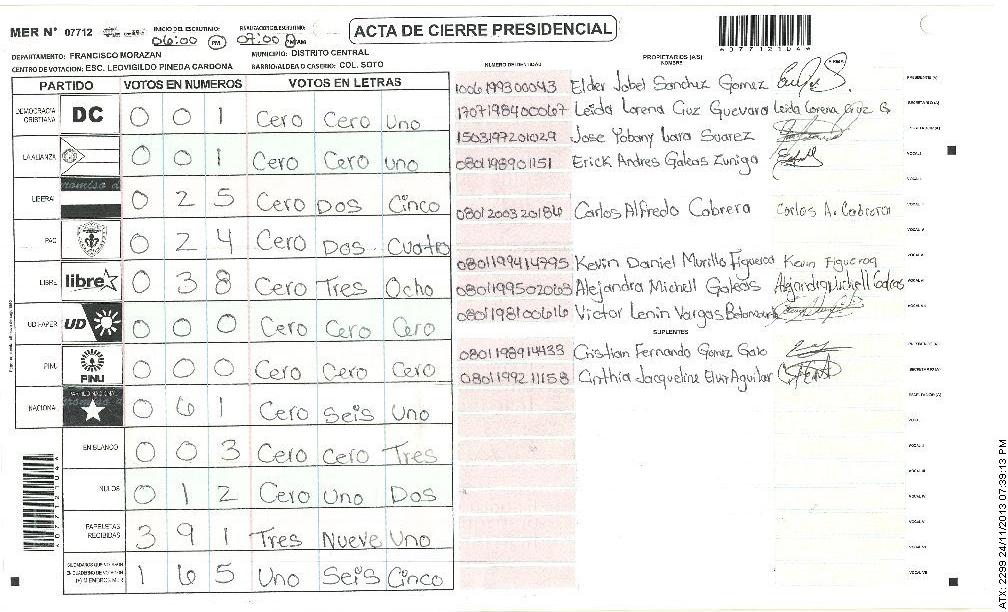 MER N° 07712 INICIO DEL ESCRUTINIO: 06:00 PM FINALIZACION DEL ESCRUTINIO: 07:00 PM
ACTA DE CIERRE PRESIDENCIAL
*07712104*
DEPARTAMENTO: FRANCISCO MORAZAN MUNICIPIO: DISTRITO CENTRAL
CENTRO DE VOTACION: ESC. LEOVIGILDO PINEDA CARDONA BARRIO/ALDEA O CASERIO: COL. SOTO
PARTIDO VOTOS EN NUMEROS VOTOS EN LETRAS
DEMOCRACIA CRISTIANA DC 0 0 1 Cero Cero Uno
LA ALIANZA 0 0 1 Cero Cero Uno
LIBERAL 0 2 5 Cero Dos Cinco
PAC 0 2 4 Cero Dos Cuatro
LIBRE libre 0 3 8 Cero Tres Ocho
UD/FAPER UD 0 0 0 Cero Cero Cero
PINU PINU 0 0 0 Cero Cero Cero
NACIONAL 0 6 1 Cero Seis Uno
EN BLANCO 0 0 3 Cero Cero Tres
NULOS 0 1 2 Cero Uno Dos
PAPELETAS RECIBIDAS 3 9 1 Tres Nueve Uno
1 6 5 Uno Seis Cinco
NUMERO DE IDENTIDAD PROPIETARIOS (AS) NOMBRE FIRMA
1006199300093 Elder Jobel Sanchez Gomez PRESIDENTE(A)
1707198400067 Leida Lorena Cruz Guevara Leida Lorena Cruz G SECRETARIO(A)
1503197201029 Jose Yobany Lara Suarez
0801198901151 Erick Andres Galeas Zuniga VOCAL I
0801200320186 Carlos Alfredo Cabrera Carlos A. Cabrera
0801199414795 Kevin Daniel Murillo Figueroa Kevin Figueroa
0801199502063 Alejandra Michell Galeas Alejandra Michell Galeas
0801198100616 Victor Lenin Vargas Betancourth
SUPLENTES
0801198914433 Cristian Fernando Gomez Galo
0801199211158 Cinthia Jacqueline Elvir Aguilar
ATX: 2299 24/11/2013 07:39:13 PM